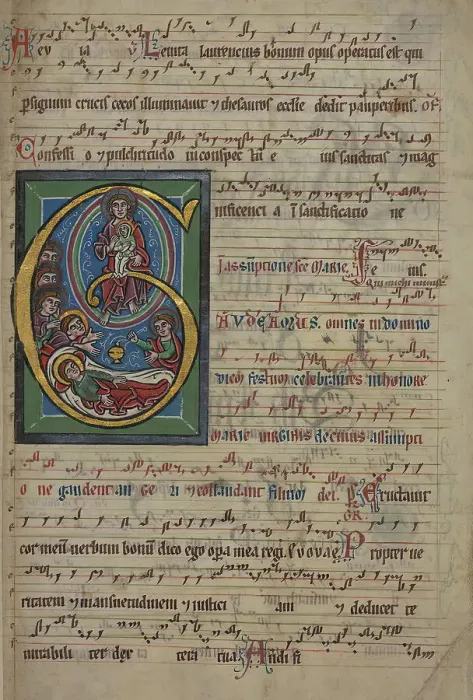 Aev ia v Levita laurencius bonum opus operatus est qui
per signum crucis cecos illuminavit ⁊ thesauros ecclie dedit pauperibus. OF.
Confessi o ⁊ pulchritudo in conspec tu e ius sanctitas ⁊ mag
nificenci a ī sanctificatio ne
I assuptione sce MARIE. e ius.
GAVDEAMUS. omnes in domino
diem festum celebrantes in honore
MARIE virginis de cuius assumpti
o ne gaudent an ge li ⁊ collaudant filium dei. ps. Eructavit
GR.
cor meum verbum bonum dico ego opera mea regi. Evovae. Propter ve
ritatem ⁊ mansuetudinem ⁊ iustici am ⁊ deducet te
mirabili ter dex tera tua Audi fi